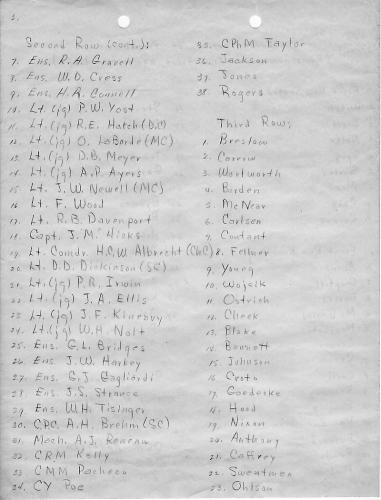 2.
Second Row (cont.):
7. Ens. R.A. Gravell
8. Ens. W.D. Cress
9. Ens. H.R. Connell
10. Lt. (jg) P.W. Yost
11. Lt. (jg) R.E. Hatch (DC)
12. Lt. (jg) O. LaBorde (MC)
13. Lt. (jg) D.B. Meyer
14. Lt. (jg) A.P. Ayers
15. Lt. J.W. Newell (MC)
16. Lt. F. Wood
17. Lt. R.B. Davenport
18. Capt. J.M. Hicks
19. Lt. Comdr. H.C.W. Albrecht (ChC)
20. Lt. D.D. Dickinson (SC)
21. Lt. (jg) P.R. Irwin
22. Lt. (jg) J.A. Ellis
23. Lt. (jg) J.F.
24. Lt. (jg) W.H. Nolt
25. Ens. G.L. Bridges
26. Ens. J.W. Harkey
27. Ens. G.J. Gagliardi
28. Ens. J.S. Strance
29. Ens. W.H. Tislnger
30. CPC. A.H. Brehm (SC)
31. Mach. A.J.
32. CRM Kelly
33. CMM Pacheco
34. CY Poe
35. CPhM Taylor
36. Jackson
37. Jones
38. Rogers
Third Row:
1. Breslow
2.
3. Woolworth
4. Borden
5. McNear
6. Carlsen
7. Coutant
8. Fellner
9. Young
10. Wojcik
11. Ostrich
12. Cheek
13. Blake
14. Bennett
15. Johnson
16.
17. Goedecke
18. Hood
19. Nixon
20. Anthony
21. Caffrey
22. Sweatmen
23. Ohlson